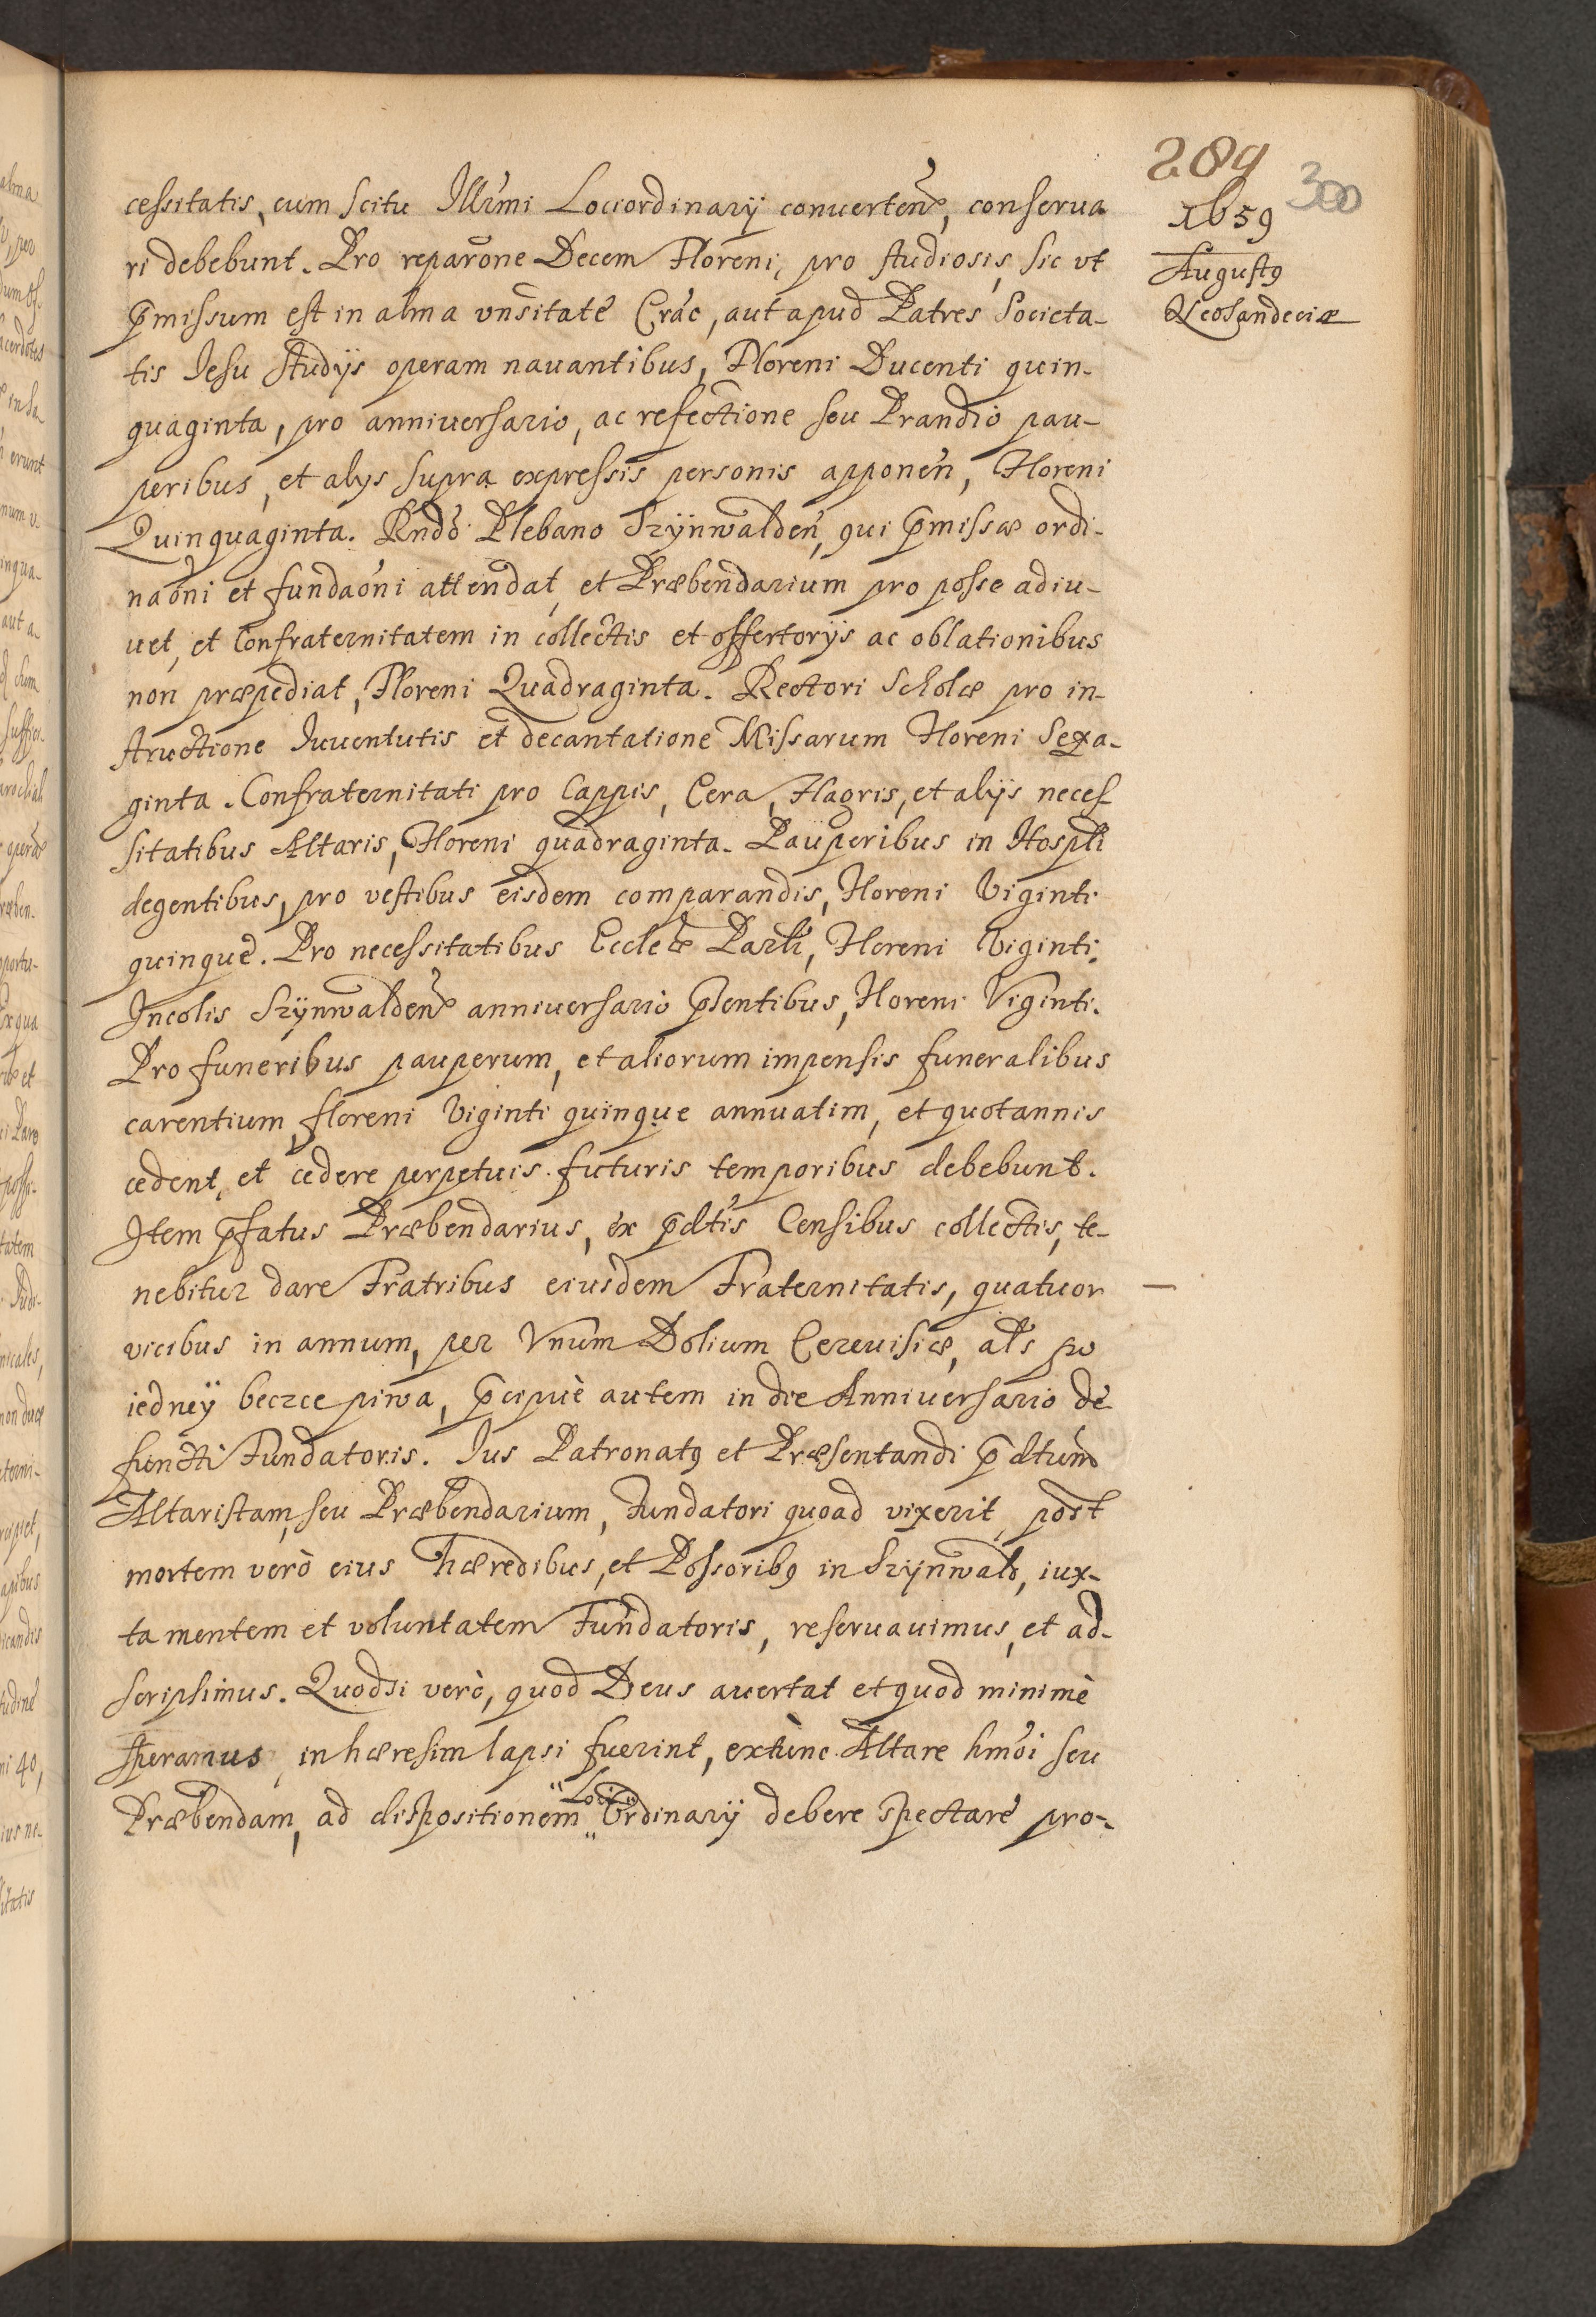 289
300
1659
Augustꝰ
Neosandeciæ
cessitatis, cum scitu Illr̃mi Lociordinarij conuerteñ, conserua
ri debebunt. Pro reparõne Decem Floreni, pro studiosis, sic vt
p̃missum est in alma vnsitate Crac, aut apud Patres Societa-
tis Iesu studijs operam nauantibus, Floreni Ducenti quin-
quaginta, pro anniuersario, ac refectione seu Prandio pau-
peribus, et alijs supra expressis personis apponeñ, Floreni
Quinquaginta. Rndo Plebano Szÿnwaldeñ, qui p̃missæ ordi-
naõni et fundaõni attendat, et Præbendarium pro posse adiu-
uet, et Confraternitatem in collectis et offertorijs ac oblationibus
non præpediat, Floreni Quadraginta. Rectori Scholæ pro in-
structione Iuuentutis et decantatione Missarum Floreni Sexa-
ginta. Confraternitati pro Cappis, Cera, Flagris, et alijs neces-
sitatibus Altaris, Floreni quadraginta. Pauperibus in Hospli
degentibus, pro vestibus eisdem comparandis, Floreni Viginti
quinque. Pro necessitatibus Ecclæ Parli, Floreni Viginti.
Incolis Szÿnwaldeñ anniuersario p̃sentibus, Floreni Viginti.
Pro funeribus pauperum, et aliorum impensis funeralibus
carentium, floreni Viginti quinque annuatim, et quotannis
cedent, et cedere perpetuis futuris temporibus debebunt.
Item p̃fatus Præbendarius, ex p̃dtis Censibus collectis, te-
nebitur dare Fratribus eiusdem Fraternitatis, quatuor
vicibus in annum, per Vnum Dolium Cereuisiæ, als po
iedneÿ beczce piwa, p̃cipuè autem in die Anniuersario de
functi Fundatoris. Ius Patronatꝰ et Præsentandi p̃dtum
Altaristam, seu Præbendarium, Fundatori quoad vixerit, post
mortem verò eius hæredibus, et Possoribꝰ in Szÿnwald, iux-
ta mentem et voluntatem Fundatoris, reseruauimus, et ad-
scripsimus. Quodsi verò, quod Deus auertat et quod minimè
speramus, in hæresim lapsi fuerint, extunc Altare hmõi seu
Præbendam, ad dispositionem Loci Ordinarij debere spectare pro-